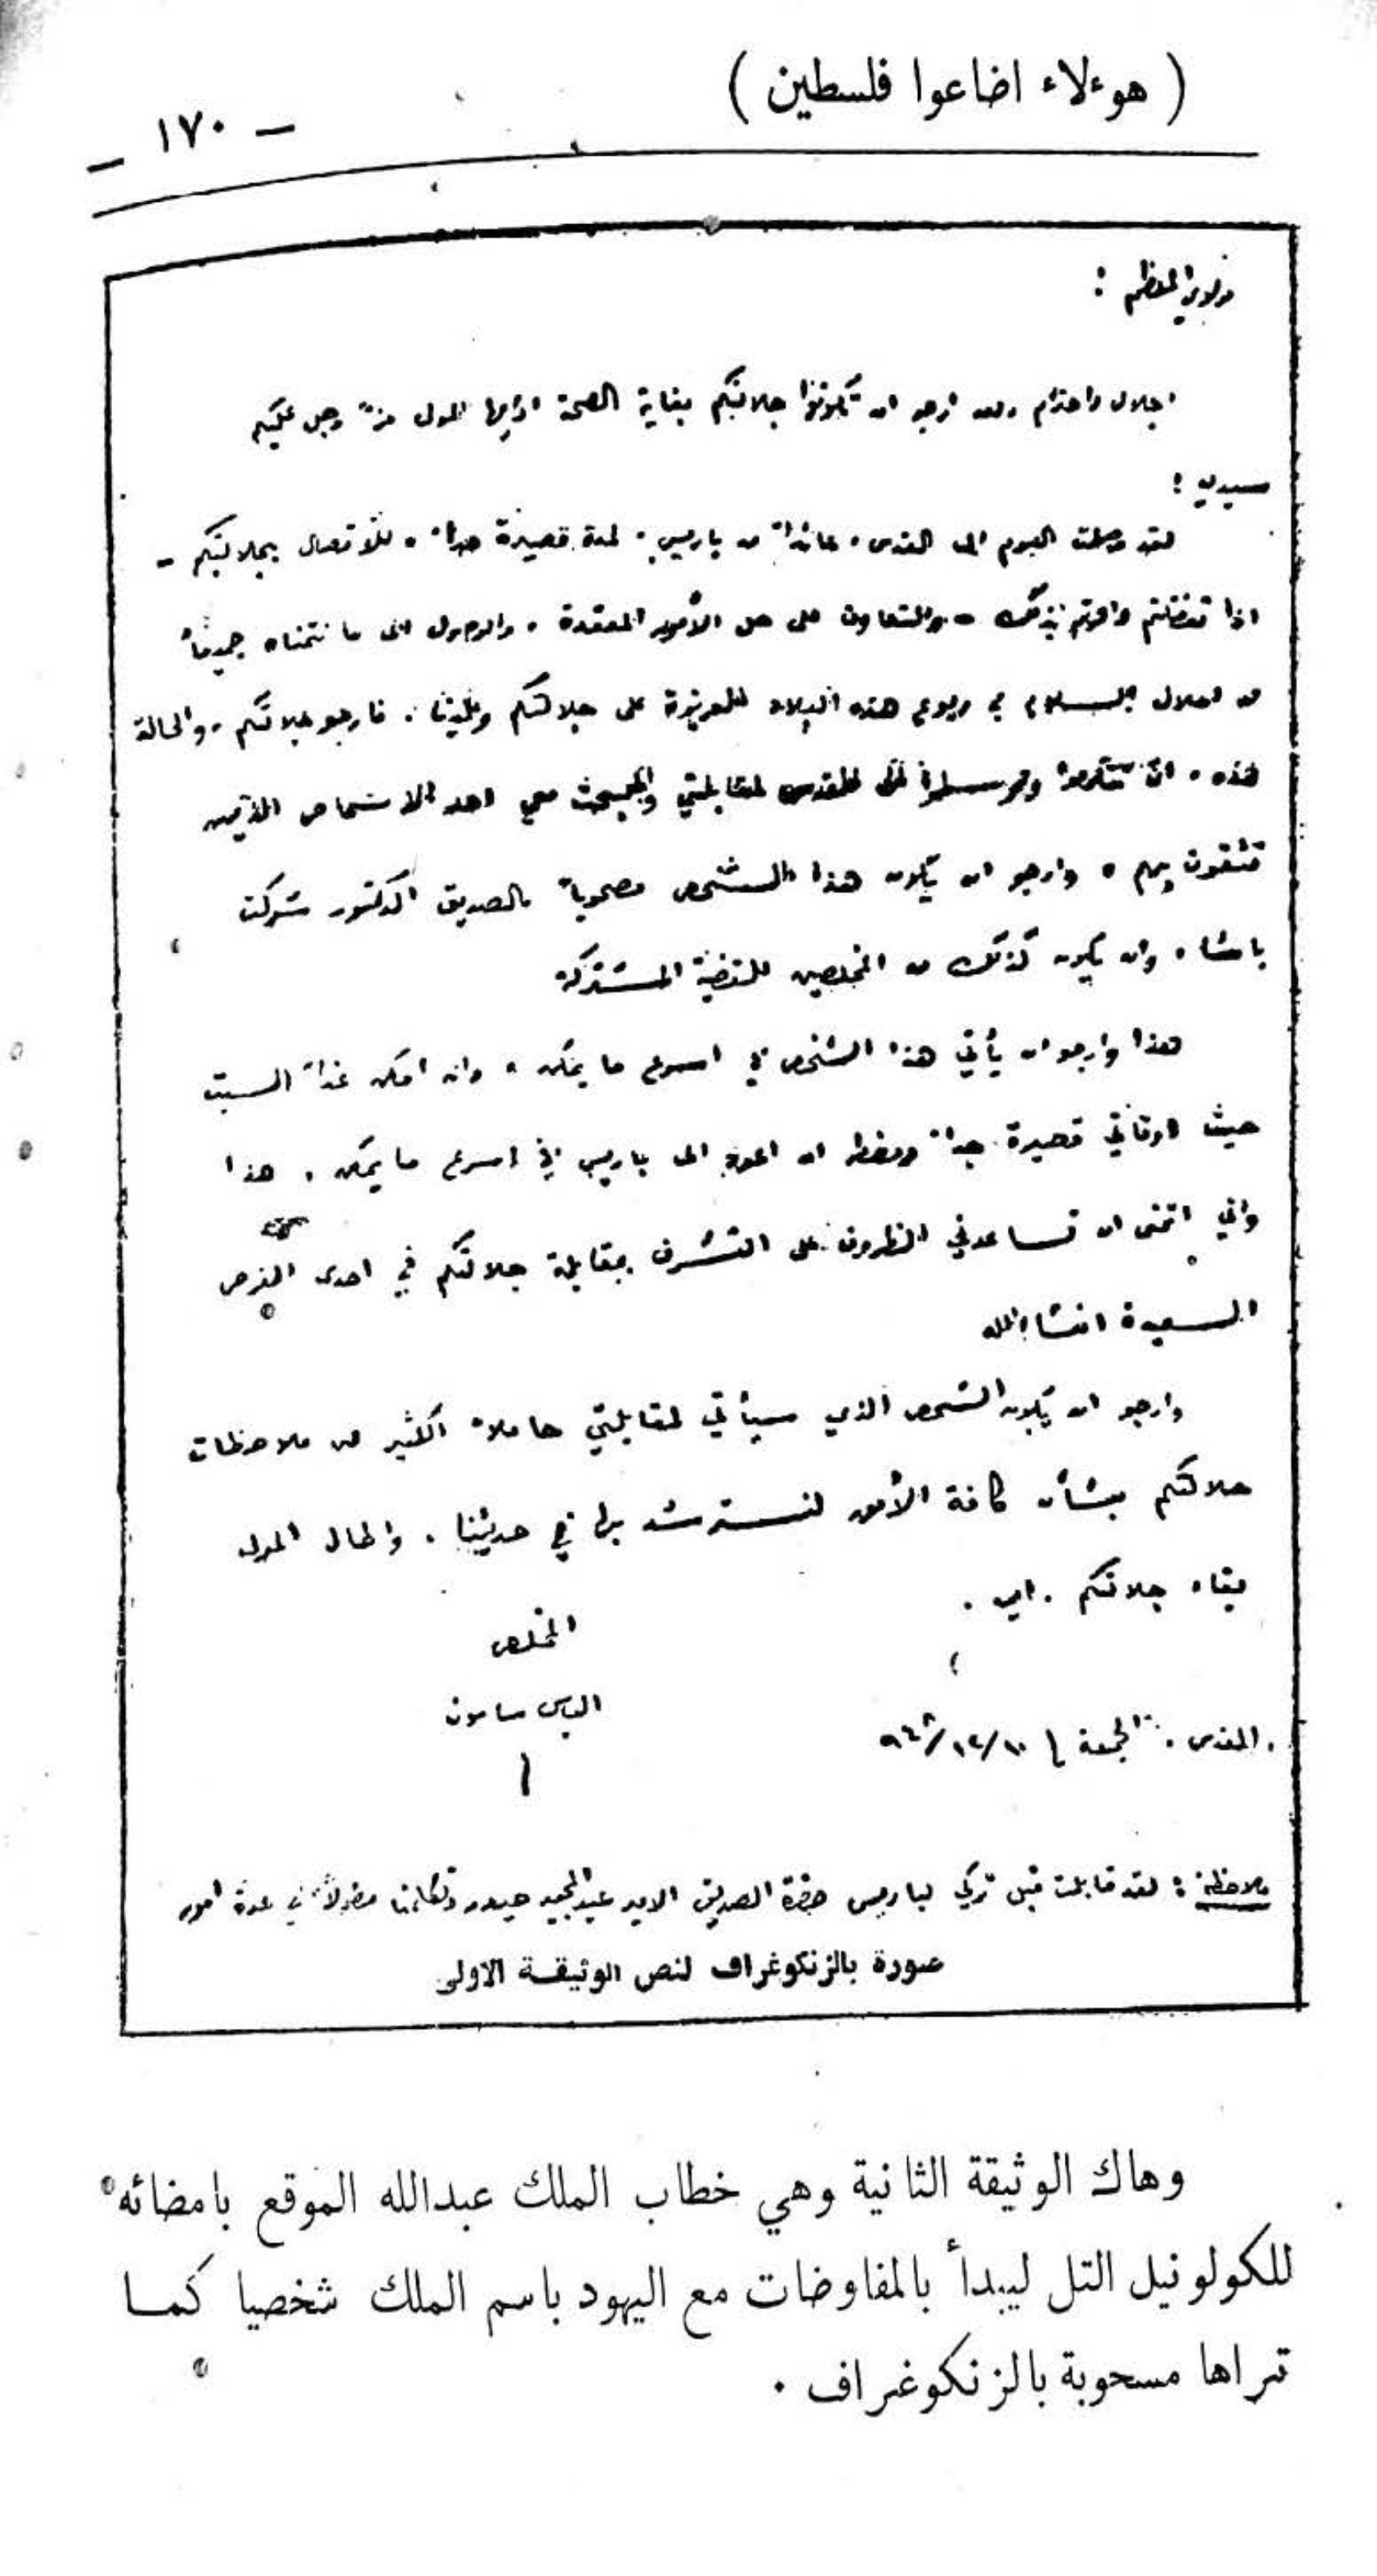 ( هوءلاء اضاعوا فلسطين )
– ١٧٠ –
مولاي المعظم :
اجلال واحترام وبعد ارجو ان تكونوا جلالتكم بغاية الصحة ادامها المولى عز وجل عليكم
سيدي :
لقد وصلت اليوم الى القدس ، عائداً من باريس ، لمدة قصيرة جداً ، للاتصال بجلالتكم –
اذا تفضلتم وامرتم بذلك – وللتعاون على حل الأمور المعقدة ، والوصول الى ما نتمناه جميعاً
من احلال السلام في ربوع هذه البلاد العزيزة على جلالتكم وعلينا . فارجو جلالتكم ، والحالة
هذه ، ان تتكرموا وترسلوا الى القدس لمقابلتي وللبحث معي احد الاشخاص الذين
تثقون بهم ، وارجو ان يكون هذا الشخص مصحوباً بالصديق الدكتور شوكت
باشا ، وان يكون كذلك من المخلصين للقضية المشتركة
هذا وارجو ان يأتي هذا الشخص في اسرع ما يمكن ، وان امكن غداً السبت
حيث اوقاتي قصيرة جداً ومضطر ان اعود الى باريس في اسرع ما يمكن . هذا
واني اتمنى ان تساعدني الظروف على التشرف بمقابلة جلالتكم في احدى الفرص
السعيدة انشاء الله
وارجو ان يكون الشخص الذي سيأتي لمقابلتي حاملاً الكثير من ملاحظات
جلالتكم بشأن كافة الأمور لنسترشد بها في حديثنا . واطال المولى
بقاء جلالتكم .
المخلص
الياس ساسون
القدس . الجمعة ١٠/١٢/٩٤٨
ملاحظة : لقد قابلت قبل تركي لباريس حضرة الصديق الامير عبد المجيد حيدر وتكلمنا مطولاً في عدة امور
صورة بالزنكوغراف لنص الوثيقة الاولى
وهاك الوثيقة الثانية وهي خطاب الملك عبدالله الموقع بامضائه
للكولونيل التل ليبدأ بالمفاوضات مع اليهود باسم الملك شخصيا كما
تراها مسحوبة بالزنكوغراف .